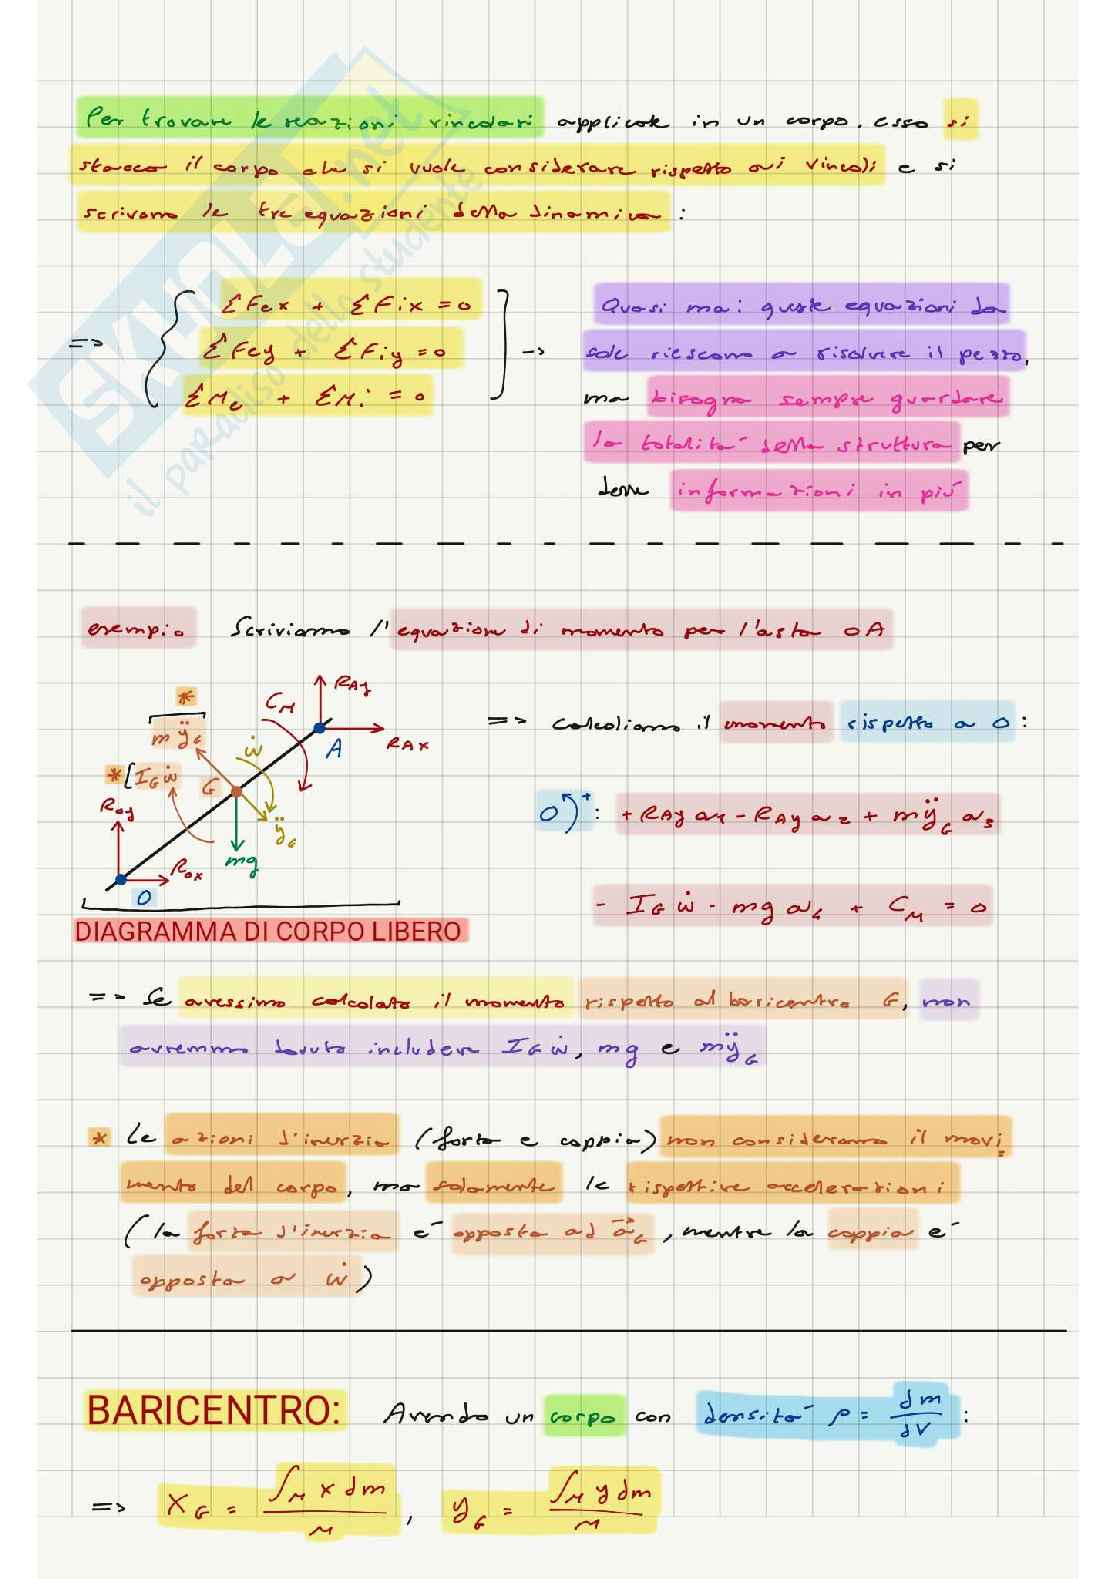 Per trovare le reazioni vincolari applicate in un corpo. esso si
stacca il corpo che si vuole considerare rispetto ai vincoli e si
scrivono le tre equazioni della dinamica:
=> { ΣFex + ΣFix = 0
ΣFey + ΣFiy = 0
ΣMe + ΣMi = 0 ] ->
Quasi mai queste equazioni da
sole riescono a risolvere il pezzo,
ma bisogna sempre guardare
la totalità della struttura per
delle informazioni in più
esempio Scriviamo l'equazione di momento per l'asta OA
*
m ÿG
*[IG ω̇
G
ω̇
CM
RAy
RAx
A
ROy
ROx
O
mg
ÿG
DIAGRAMMA DI CORPO LIBERO
=> calcoliamo il momento rispetto a O:
O)+: + RAy a1 - RAy a2 + mÿG a3
- IG ω̇ - mg a4 + CM = 0
=> Se avessimo calcolato il momento rispetto al baricentro G, non
avremmo dovuto includere IG ω̇, mg e mÿG
* Le azioni d'inerzia (forza e coppia) non considerano il movi
mento del corpo, ma solamente le rispettive accelerazioni
(la forza d'inerzia è opposta ad a⃗G, mentre la coppia è
opposta a ω̇)
BARICENTRO: Avendo un corpo con densità ρ = dm/dV :
=> XG = ∫M x dm / M , yG = ∫M y dm / M
SKUOLA.net
il paradiso dello studente